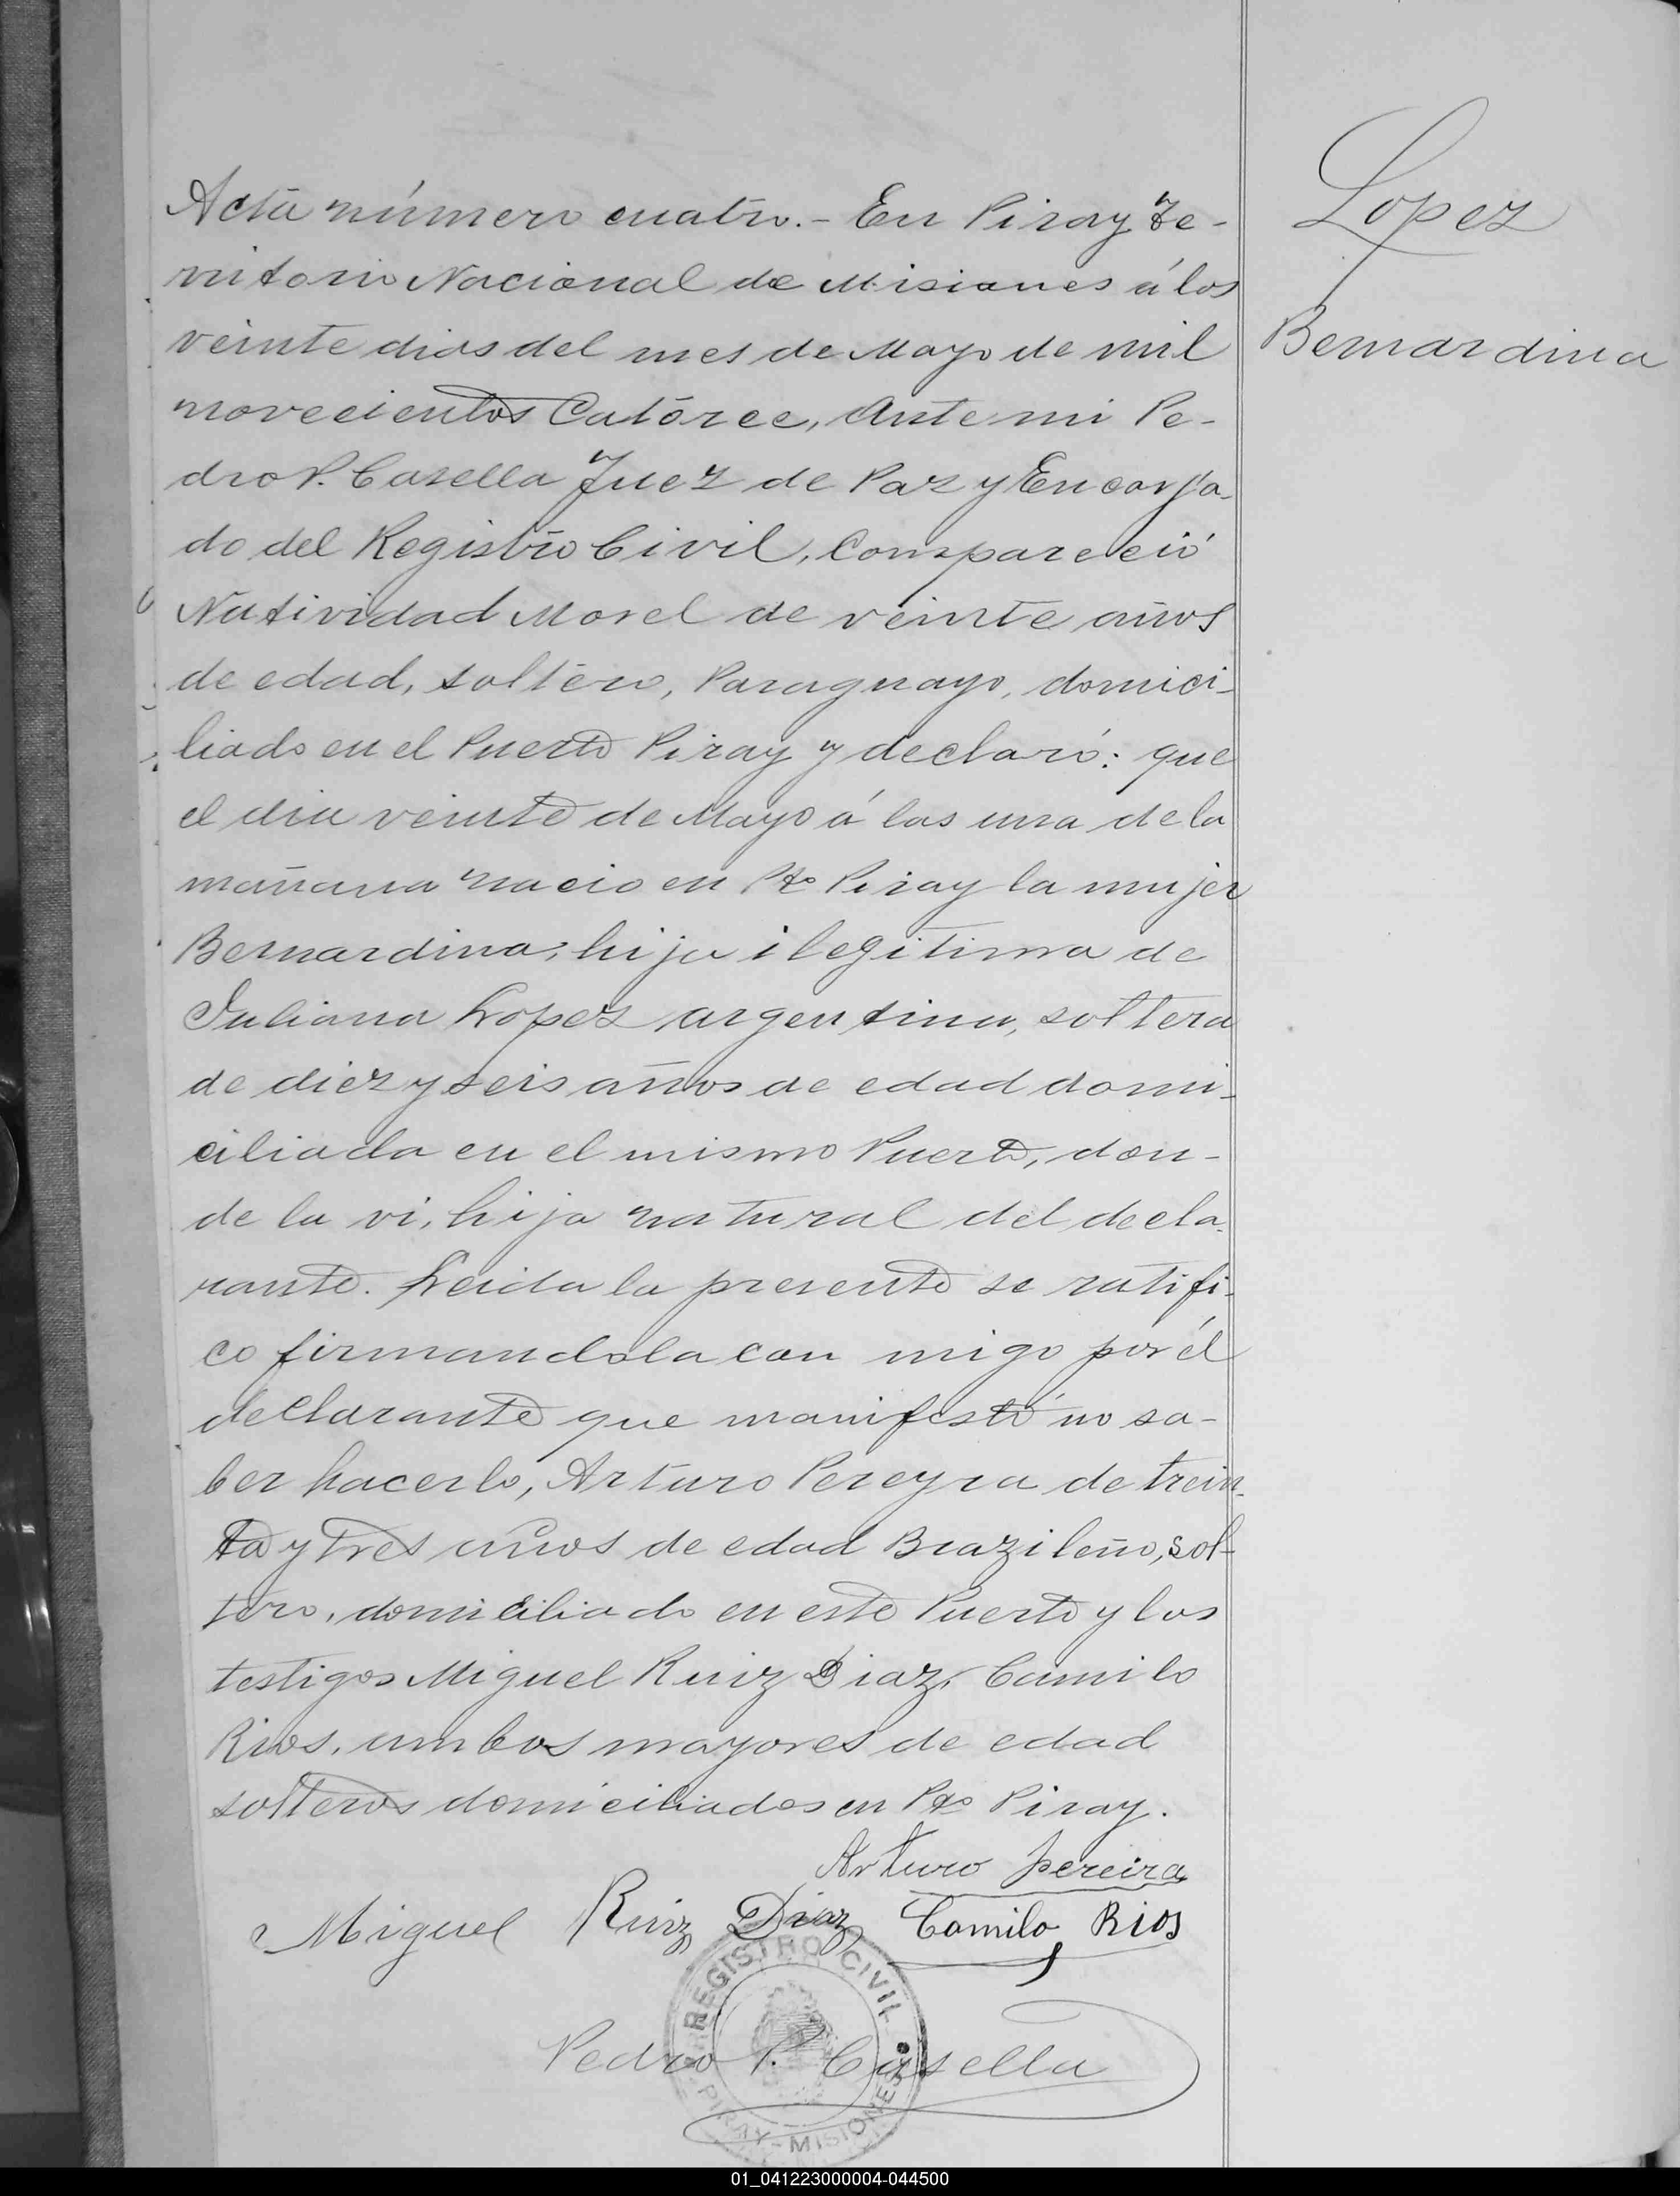 Acta número cuatro.- En Piray Te-
rritorio Nacional de Misiones á los
veinte dias del mes de Mayo de mil
novecientos Catorce, Ante mi Pe-
dro P. Casella Juez de Paz y Encarga-
do del Registro Civil, Compareció
Natividad Morel de veinte años
de edad, soltero, Paraguayo, domici-
liado en el Puerto Piray y declaró: que
el dia veinte de Mayo á las una de la
mañana nacio en Pto Piray la mujer
Bernardina, hija ilegitima de
Juliana Lopez argentina, soltera
de diez y seis años de edad domi-
ciliada en el mismo Puerto, don-
de la vi, hija natural del decla-
rante. Leida la presente se ratifi-
co firmandola con migo por él
declarante que manifestó no sa-
ber hacerlo, Arturo Pereyra de trein-
ta y tres años de edad Brazileño, sol-
tero, domiciliado en este Puerto y los
testigos Miguel Ruiz Diaz, Camilo
Rios, ambos mayores de edad
solteros domiciliados en Pto Piray.
Arturo pereira
Miguel Ruiz Diaz Camilo Rios
REGISTRO CIVIL
Pedro P. Casella
PIRAY - MISIONES
Lopez
Bernardina
01_041223000004-044500